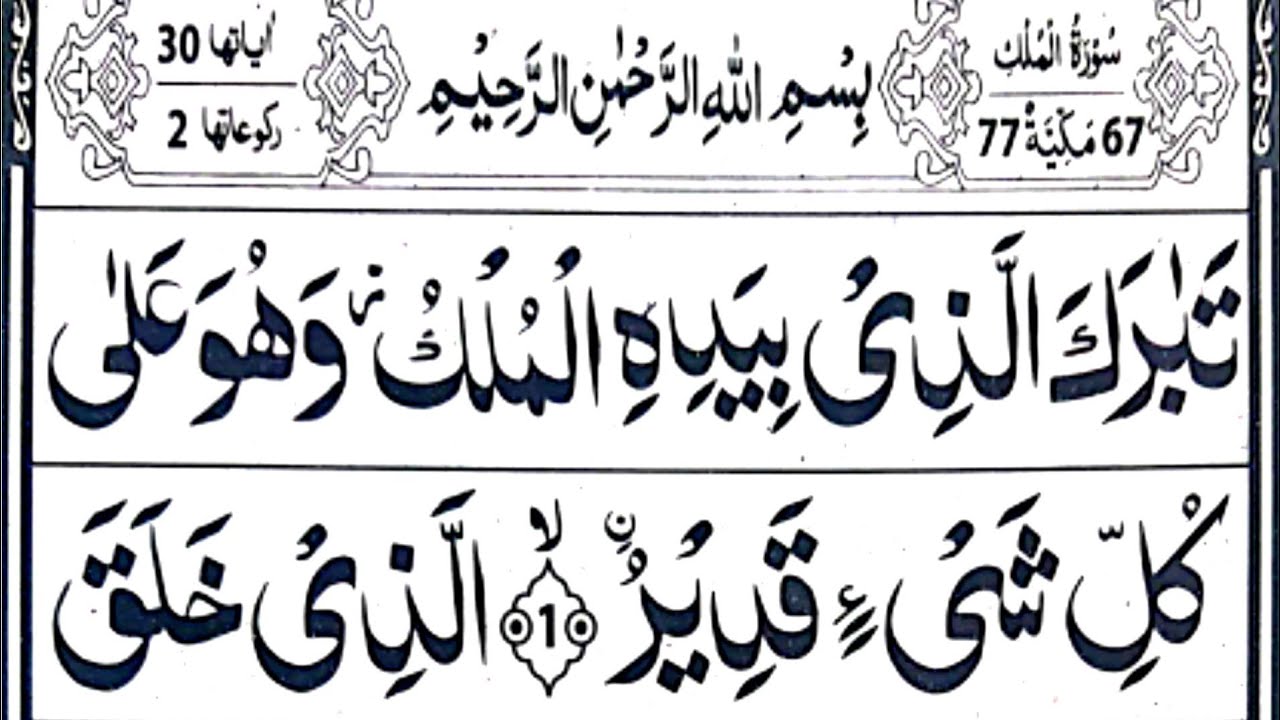 سُوْرَةُ الْمُلْكِ
67 مَكِّيَّةٌ 77
بِسْمِ اللّٰهِ الرَّحْمٰنِ الرَّحِيْمِ
اٰیاتها 30
رکوعاتها 2
تَبٰرَكَ الَّذِیْ بِیَدِهِ الْمُلْكُ ؗ وَهُوَ عَلٰی
كُلِّ شَیْءٍ قَدِیْرُ ۙ ن 1 الَّذِیْ خَلَقَ